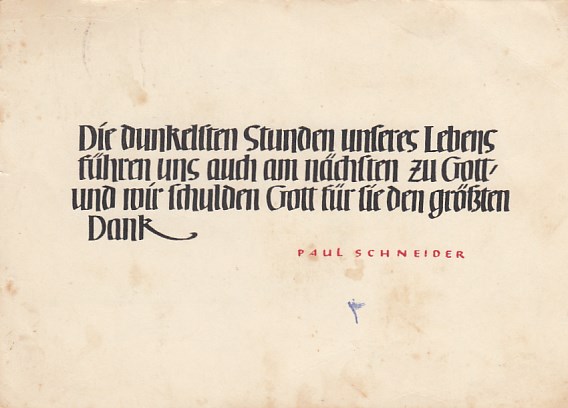 Die dunkelsten Stunden unseres Lebens
führen uns auch am nächsten zu Gott,
und wir schulden Gott für sie den größten
Dank
PAUL SCHNEIDER